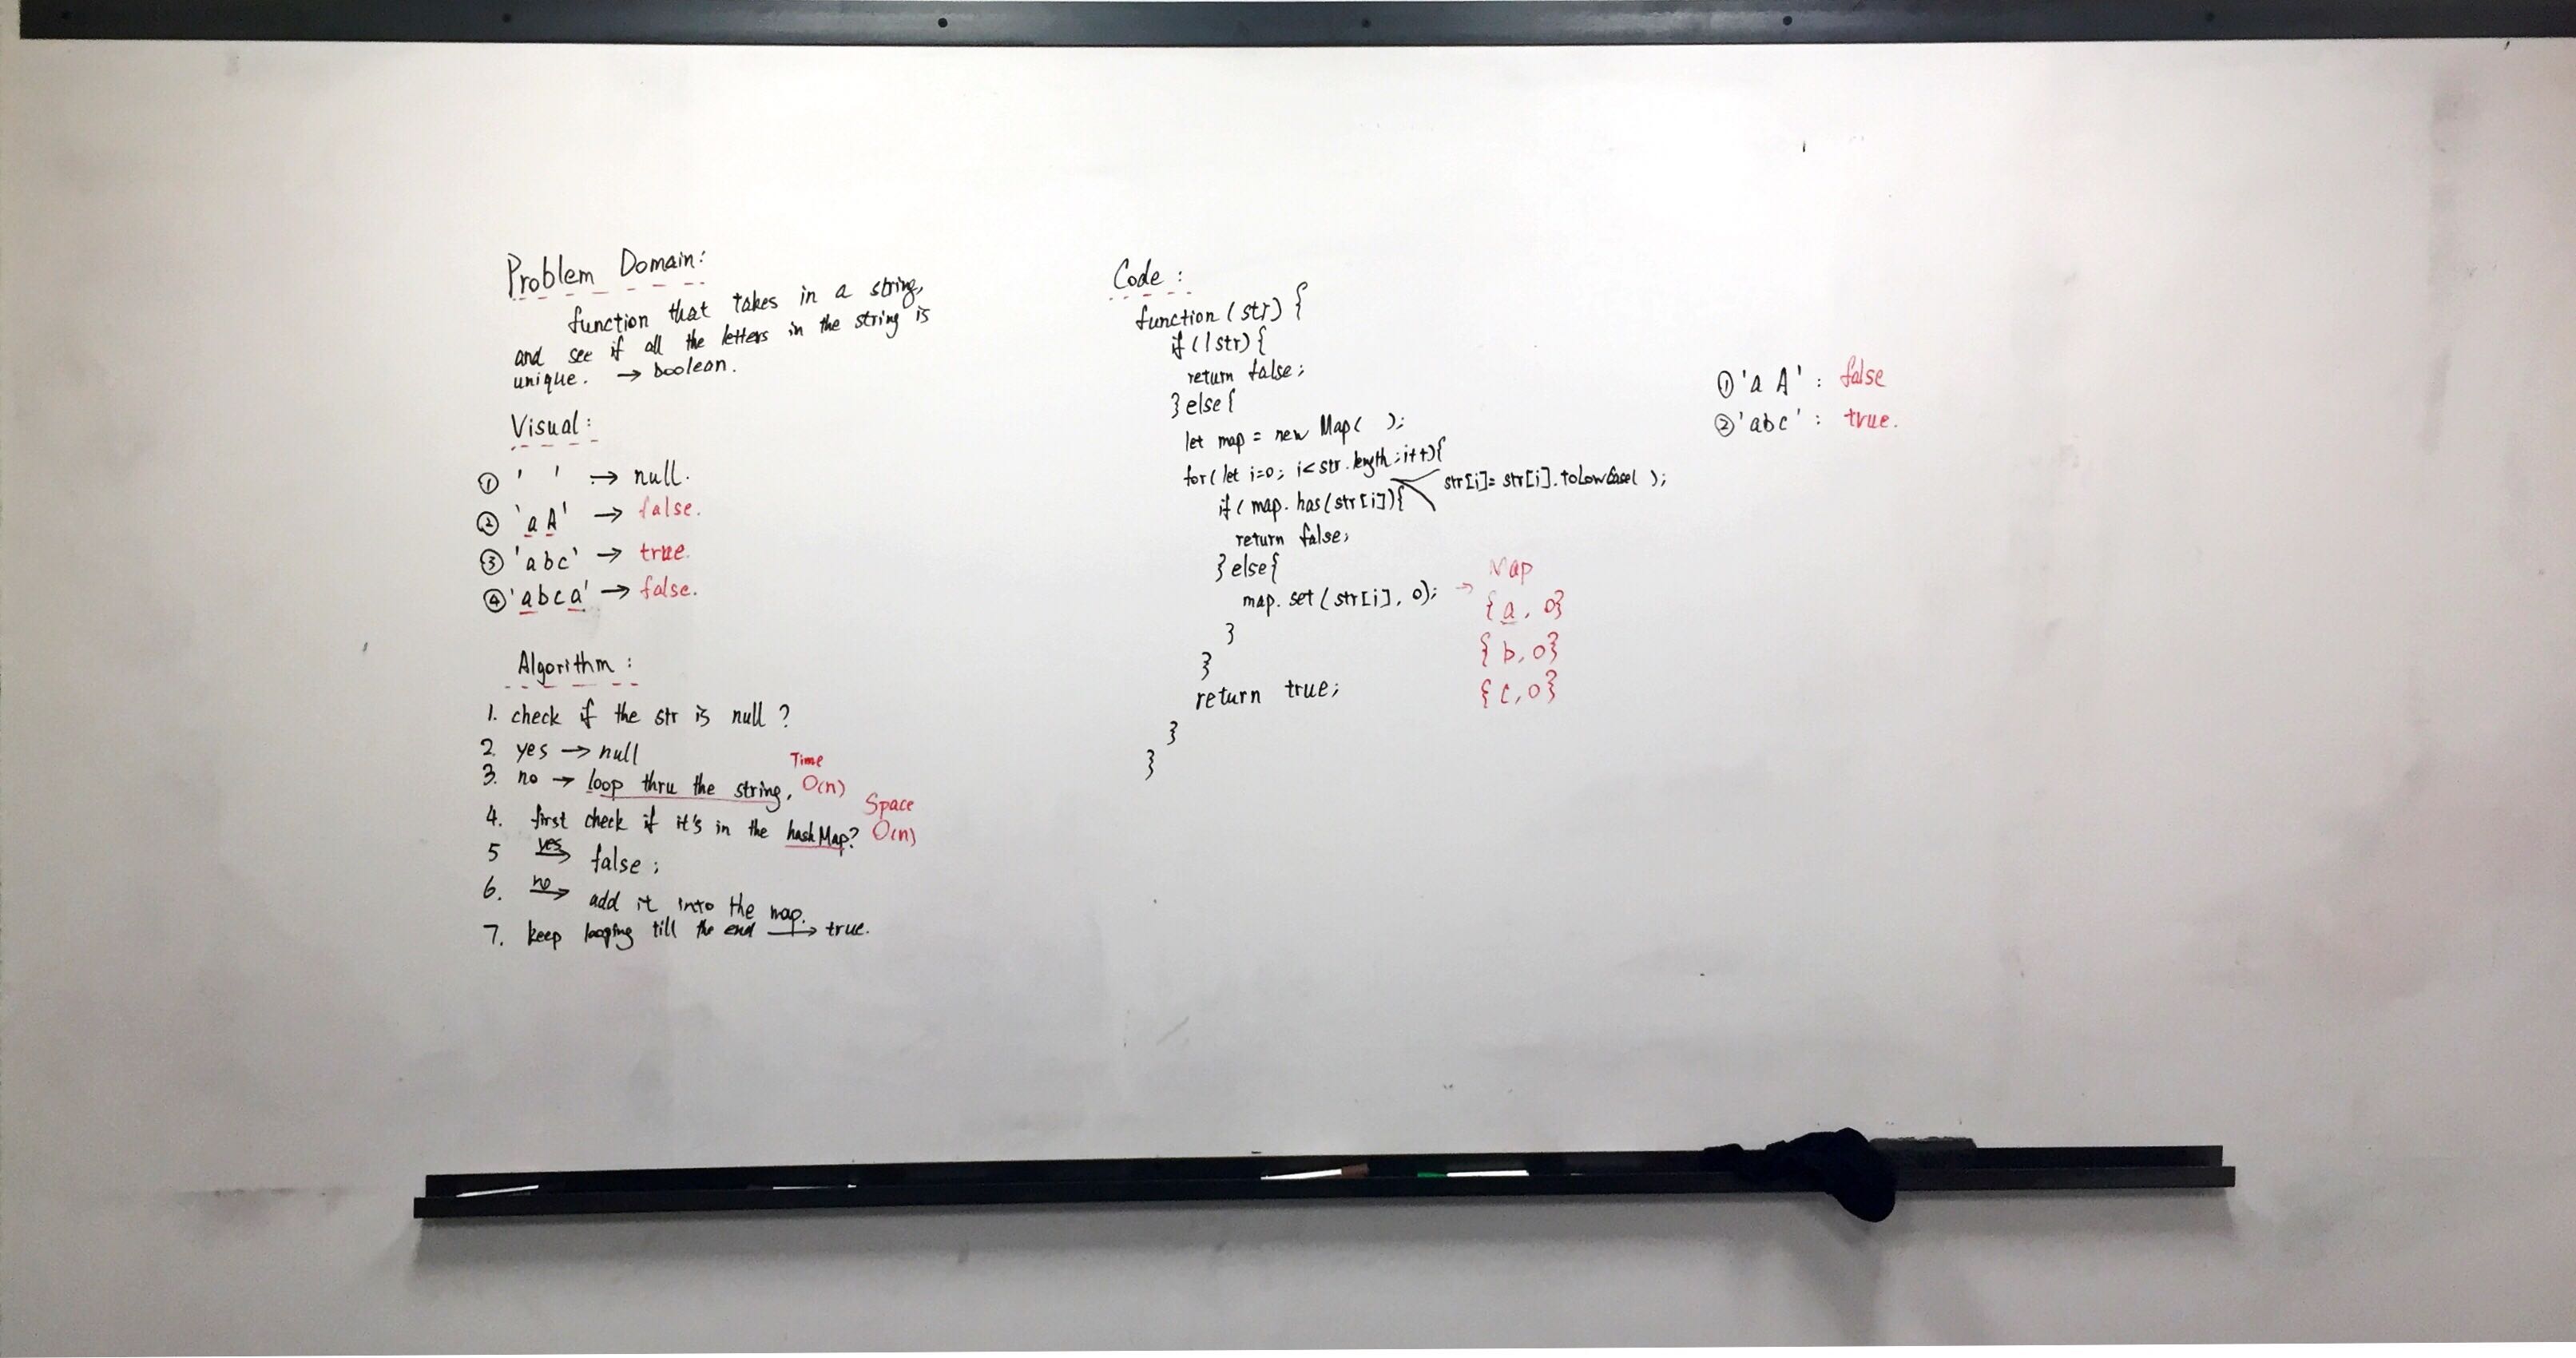 Problem Domain:
function that takes in a string,
and see if all the letters in the string is
unique. → boolean.
Visual:
① ' ' → null.
② 'aA' → false.
③ 'abc' → true.
④ 'abca' → false.
Algorithm:
1. check if the str is null?
2. yes → null
3. no → loop thru the string, Time O(n)
4. first check if it's in the hashMap? Space O(n)
5 yes→ false;
6. no→ add it into the map.
7. keep looping till the end → true.
Code:
function (str) {
if (!str) {
return false;
} else {
let map = new Map( );
for (let i=0; i<str.length; i++){
str[i]= str[i].toLowCase( );
if ( map.has(str[i]){
return false;
} else {
map.set (str[i], 0); →
}
}
return true;
}
}
Map
{a, 0}
{b, 0}
{c, 0}
① 'aA' : false
② 'abc' : true.